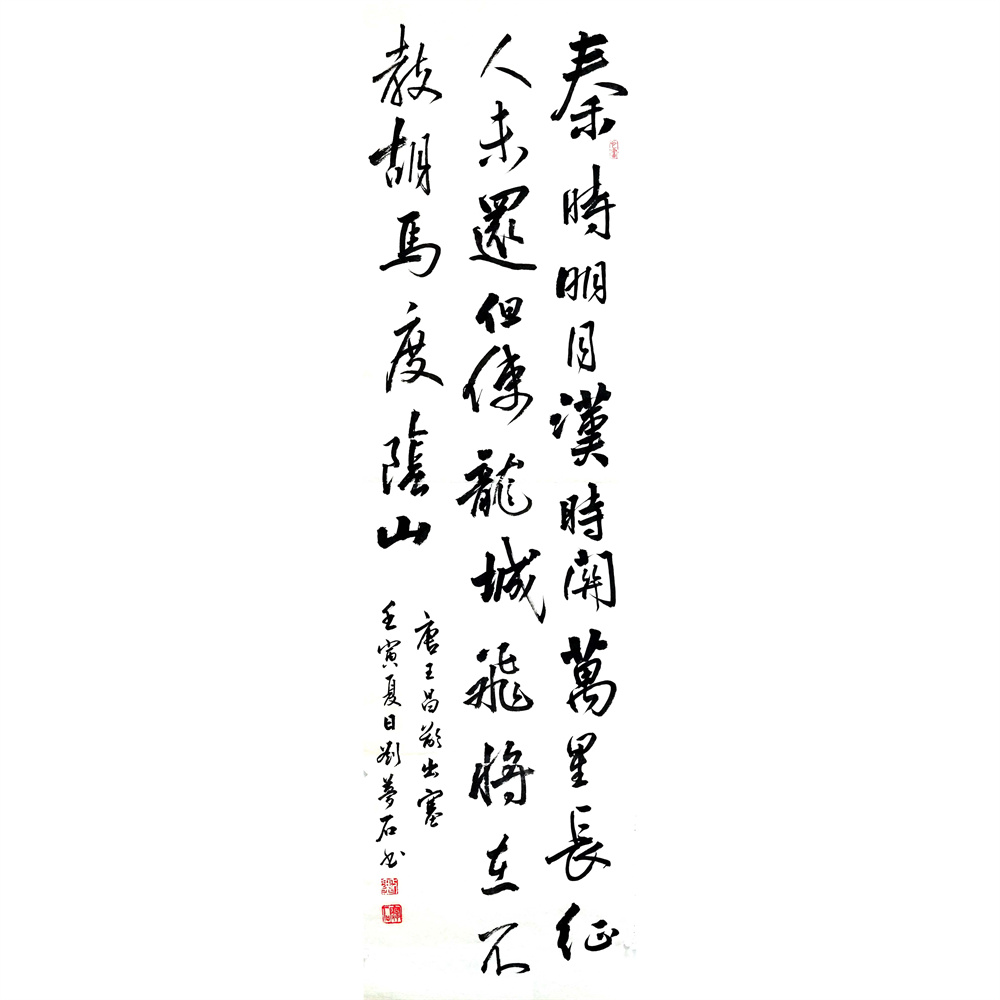 秦時明月漢時關萬里長征
人未還但使龍城飛將在不
教胡馬度陰山
唐王昌齡出塞
壬寅夏日劉夢石書